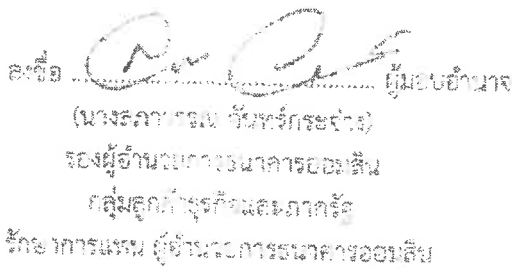 ลงชื่อ ........................ ผู้มอบอำนาจ
(นาง จันทร์กระจ่าง)
รองผู้อำนวยการธนาคารออมสิน
กลุ่มลูกค้าธุรกิจและภาครัฐ
รักษาการแทน ผู้อำนวยการธนาคารออมสิน